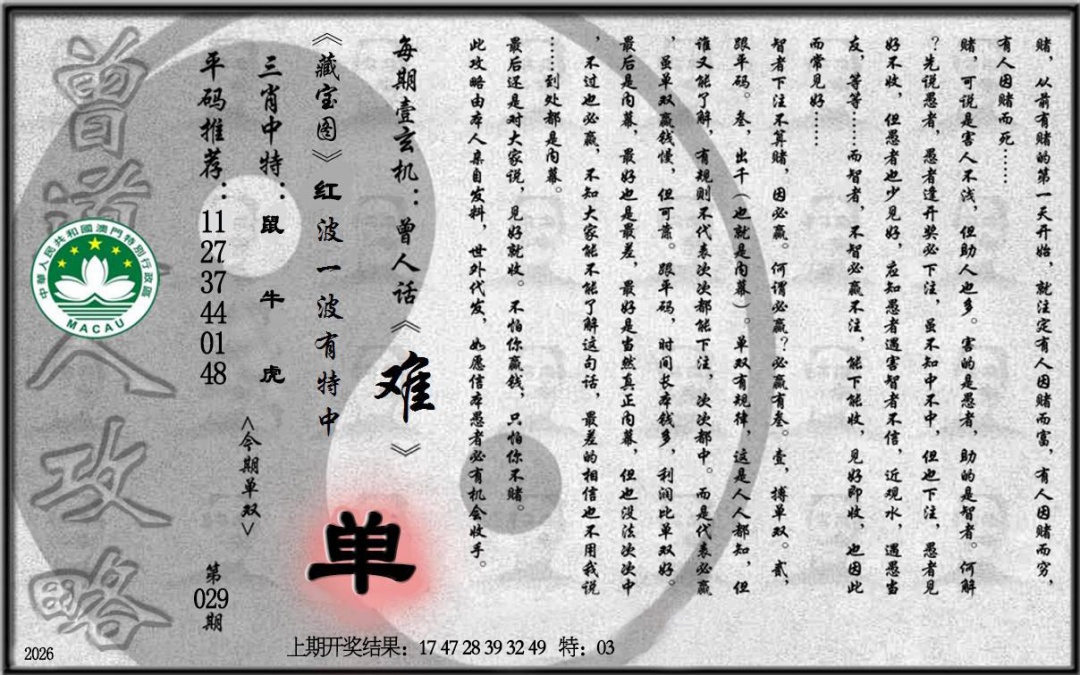 赌，从前有赌的第一天开始，就注定有人因赌而富，有人因赌而穷，
有人因赌而死……
赌，可说是害人不浅，但助人也多。害的是愚者，助的是智者。何解
？先说愚者，愚者逢开奖必下注，虽不知中不中，但也下注，愚者见
好不收，但愚者也少见好，应知愚者遇害智者不信，近观水，遇愚当
友，等等……而智者，不智必赢不注，能下能收，见好即收，也因此
而常见好……
智者下注不算赌，因必赢。何谓必赢？必赢有叁。壹，搏单双。贰，
跟单码。叁，出千（也就是内幕）。单双有规律，这是人人都知，但
谁又能了解，有规则不代表次次都能下注，次次都中。而是代表必赢
，虽单双赢钱慢，但可靠。跟单码，时间长本钱多，利润比单双好。
最后是内幕，最好也是最差，最好是当然真正内幕，但也没法次次中
，不过也必赢，不知大家能不能了解这句话，最差的相信也不用我说
……到处都是内幕。
最后还是对大家说，见好就收。不怕你赢钱，只怕你不赌。
此攻略由本人亲自发料，世外代发，如愿信本愚者必有机会收手。
每期壹玄机：曾人话《难》
《藏宝图》红波一波有特中
单
三肖中特：鼠牛虎
<今期单双>
平码推荐：11 27 37 44 01 48
第029期
曾道人攻略
中華人民共和國澳門特別行政區
MACAU
2026
上期开奖结果：17 47 28 39 32 49 特：03